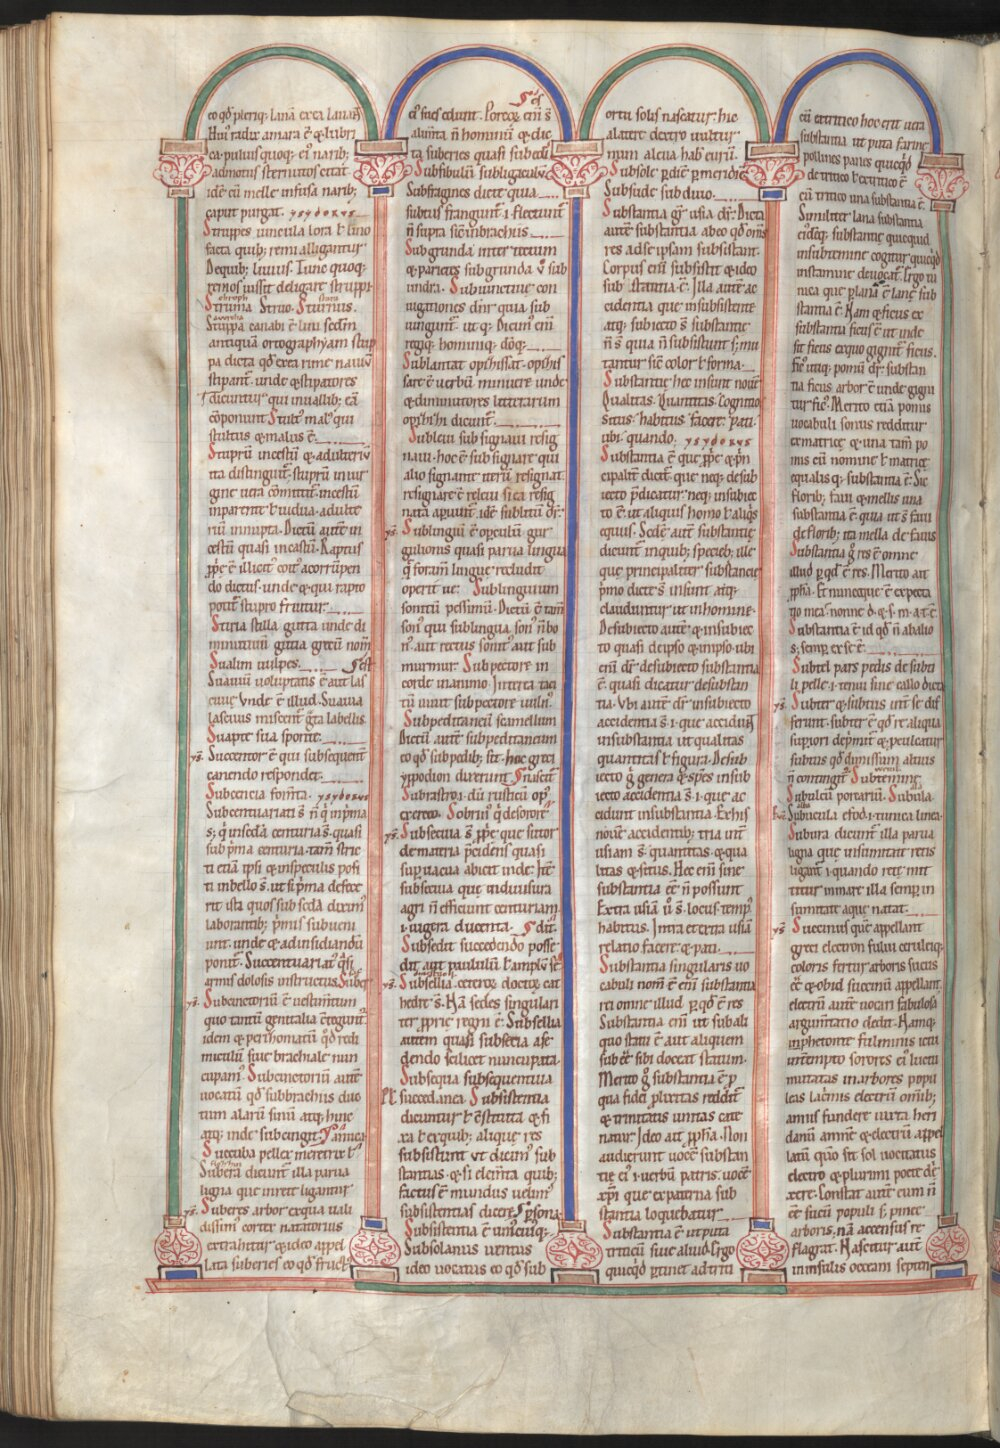 eo qđ pleriq; lanā ex ea lauant
Hui' radix amara ē & lubri
ca. puluis quoq; ei' narib;
admotus sternutos citat.
idē cū melle infusa narib;
caput purgat. ysydorus
Struppes uincula lora ł lino
facta quib; remi alligantur
De quib; liuius. Iuno quoq;
remos iussit deligare struppi
Struma Struo. Sturnus.
Stuppa canabi ē ł lini scđm
antiquā ortographyam stup
pa dicta qđ ex ea rime nauiū
stipant. unde & stipatores
dicuntur qui in uallib; eā
cōponunt Stult' mal' qui
stultus & malus ē.
Stuprū incestū & adulteriū
ita distingunt. stuprū in uir
gine uera cōmittit. incestū
in parente ł uidua. adulte
riū in nupta. Dictū autē in
cestū quasi incastū. Raptus
ppe ē illicit' coit' a corrūpen
do dictus. unde & qui rapto
potit stupro fruitur.
Stiria stilla gutta unde di
minutiuū gutta grecū nom̄
Sualim uulpes.
Suauiū uoluptatis ē aut las
ciuię. Vnde ē illud. Suauia
lasciuus miscent grata labellis
Suapte sua sponte.
Succentor ē qui subsequent
canendo respondet.
Subcencia form̄ta. ysydorus
Subcenturiati s̄ n̄ q̄ in p̄ma
s; q̄ in secđa centuria s̄. quasi
sub p̄ma centuria. tam̄ stric
ti etiā ipsi & in speculis posi
ti in bello s̄. ut si p̄ma defece
rit ista quos sub secđa dixim'
laborantib; p̄mis subueni
unt. unde & ad insidiandū
ponit. Succenturiat' q̄si
armis dolosis instructus.
Subcinctoriū ē uestim̄tum
quo tantū genitalia cōtegunt.
idem & perizomatiū qđ redi
miculū siue brachiale nun
cupam'. Subcinctoriū autē
uocatū qđ sub brachiis duc
tum alarū sinū atq; hinc
atq; inde subcingit.
Succuba pellex meretrix ł'
Subera dicunt illa parua
ligna que in rete ligantur
Suberes arbor ex qua uali
dissim' cortex natatorius
extrahitur & ideo appel
lata suberies eo qđ fruct'
ei' sues edunt. Porcoꝝ eni s̄
alim̄ta n̄ hominū & dic
ta suberies quasi subedi
Subfibulū subligaculū
Subfragines dicte qua
subtus frangunt' .i. flectunt
n̄ supra sic in brachiis
Subgrunda inter tectum
& parietes subgrunda ł sub
undra. Subiunctiuę con
iugationes dn̄r quia sub
iungunt. ut q; Dicim' eni
regiq; hominiq; dōq;.
Sublantat ophissat. ophis
sare ē uerbū minuere unde
& diminutores litterarum
ophihi dicunt.
Subleui sub signaui resig
naui. hoc ē subsignare qui
alio signante iterū resignat.
resignare ē releui si ea resig
nata apuunt. idē sublitū dr̄.
Sublinguiū ē operculū gur
gulionis quasi parua lingua
q̄ foram̄ lingue recludit
operit ue. Sublinguium
somniū pessimū. Dictū ē tam̄
son' qui sub lingua son' n̄ bo
n' aut rectus sonit' aut sub
murmur. Sub pectore in
corde in animo. Interea taci
tū uiuit sub pectore uuln'
Subpeditaneū scamellum
Dictū autē subpeditaneum
eo qđ sub pedib; sit. hoc greci
yppodion dixerunt.
Subrastro .i. dū rusticū op'
exerceo. Sobrius q̄ desorore
Subsecua s̄ ppe que sutor
de matria p̄cidens quasi
sup uacua abicit inde. Itē
subsecua que in diuisura
agri n̄ efficiunt centuriam
.i. iugera ducenta.
Subsedit succedendo posse
dit aut paululū ł amplius
Subsellia. ceteroꝝ doctoꝝ cat
hedre s̄. Nā sedes singulari
ter proprie regni ē. Subsellia
autem quasi subseria a se
dendo scilicet nuncupata.
Subsequa subsequentiua
succedanea. Subsistentia
dicuntur ł cōstituta & fi
xa ł ex quib; aliquę res
subsistunt ut dicim' sub
stantias & si elem̄ta quib;
factus ē mundus uelim'
subsistentias dicere.
Subsistentia ē uniuscuiusq;
Subsolanus uentus
ideo uocatus eo qđ sub
ortu solis nascatur. hic
a latere dextro uultur
num a leua hab& eurū.
Subsole p̄dic p̄meridie
Subsiude subduuo.
Substantia grece usia dr̄. Dicta
autē substantia ab eo qđ om̄s
res ad se ipsam subsistant.
Corpus eni subsistit & ideo
substantia ē. Illa autē ac
cidentia que in subsistente
atq; subiecto s̄ substantie
n̄ s̄ quia n̄ subsistunt s; mu
tantur sic color ł forma.
Substantie hec insunt nouē
Qualitas. Quantitas. Cognitio
Situs. habitus. facere. pati.
ubi. quando. ysydorus
Substantia ē que ppe & p̄n
cipalit dicit. que neq; de sub
iecto p̄dicatur. neq; in subiec
to ē. ut aliquis homo ł aliqs
equus. Sedē autē substantię
dicunt in quib; specieb; ille
que principaliter substancie
p̄mo dictę s̄ insunt atq;
clauduntur ut in homine.
De subiecto autē & in subiec
to quasi de ipso & in ipso. ubi
eni dr̄ de subiecto substantia
ē. quasi dicatur de substan
tia. Vbi autē dr̄ in subiecto
accidentia s̄ .i. que accidunt
in substantia ut qualitas
quantitas ł figura. De sub
iecto g̃ genera & sp̄es in sub
iecto accidentia s̄ .i. que ac
cidunt in substantia. Ex his
nouē accidentib; tria int'
usiam s̄. quantitas. & qua
litas & situs. Hec eni sine
substantia ēē n̄ possunt
Extra usiā ū s̄. locus. temp'.
habitus. Intra et extra usiā
relatio facere & pati.
Substantia singularis uo
cabuli nom̄ ē eni substantia
rei omne illud p̄ qđ ē res
Substantia eni ut sub ali
quo stans ē aut aliquem
sub ēē sibi doceat statum.
Merito g̃ substantia ē p̄
qua fidei plixitas reddit
& trinitatis unitas cate
natur. Ideo ait ppha. Non
audierunt uocē substan
tie ei' .i. uerbū patris uocē
xp̄i que ex patria sub
stantia loquebatur.
Substantia ē ut puta
triticū siue aliud. Ergo
quicqđ ptinet ad triti
cū ex tritico hoc erit uera
substantia ut puta farine
pollines panes quicqđ
de tritico ł ex tritico ē
cū tritico una substantia ē.
Similiter lana substantia
eidēq; substantię quicquid
in subtemine cogitur quicqđ
in stamine deuocat. Ergo tu
nica que p̄ lana ē lanę sub
stantia ē. Nam & ficus ex
substantia ficus ē ut inde
sit ficus ex quo gignit' ficus.
fic' utiq; pomū dr̄. substan
tia ficus arbor ē unde gigni
tur fic'. Merito etiā pomus
uocabuli sonus redditur
ex matrice & una tam̄ po
mis eū nomine ł matrice
equalis q; substantia ē. Sic
florib; faui & mellis una
substantia ē. quia ut s̄ faui
de florib; ita mella de fauis
Substantia g̃ res ē omne
illud p̄ qđ ē res. Merito ait
ppha. Et nunc que ē expecta
tio mea. nonne d. & s. m. a. t. ē.
Substantia ē id qđ n̄ ab alio
s; semp̄ ex se ē.
Subtel pars pedis de subti
li pelle .i. tenui sine callo dicta
Subter & subtus int se dif
ferunt. subter ē qđ re aliqua
supiori dep̄mit' & p̄culcatur
subtus qđ dimissum altius
n̄ contingit. Subtemine
Subulcū porcariū. Subula.
Subucula efod .i. tunica linea.
Subura dicunt illa parua
ligna que in sumitate retis
ligant' .i. quando rete mit
titur in mare illa semper in
sumitate aque natat.
Succinus quē appellant
greci electron fului ceruleiq;
coloris fertur arboris sucus
ēē & ob id succinū appellant.
electrū autē uocari fabulosa
argumtatio dedit. Namq;
in phetonte fulminis ictu
intempto sorores ei' luctu
mutatas in arbores popu
leas lacimis electrū omib;
annis fundere iuxta heri
danū amnē & electrū appel
latū quo sit sol uocitatus
electro & plurimi poete dc̄
xere. Constat autē eum n̄
ēē sucū populi s; pineę
arboris. nā accensus re
flagrat. Nascitur autē
in insulis occeani septen